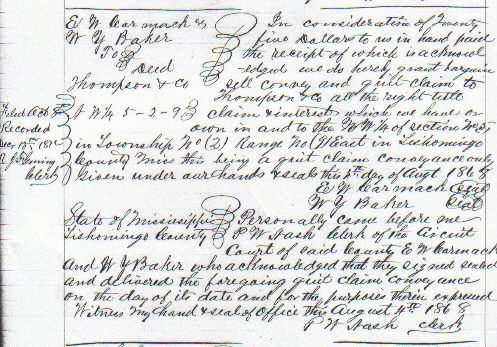 E W Carmack &
W Y Baker
To
Deed
Thompson & Co
N W 1/4 5-2-9
In consideration of Twenty
five Dollars to us in hand paid
the receipt of which is acknowl
edged we do hereby grant bargain
sell convey and quit claim to
Thompson & Co all the right title
claim & interest which we have or
own in and to the NW 1/4 of section No (5)
in Township No (2) Range No (9) East in Tishomingo
County Miss this being a quit claim conveyance only
Given under our hands & seals this 4th day of Augt 1868
E W Carmack Seal
W Y Baker Seal
Filed Oct
Recorded
Clerk
State of Mississippi
Tishomingo County
Personally came before me
P W Nash Clerk of the Circuit
Court of said County E W Carmack
And W Y Baker who acknowledged that they signed sealed
and delivered the foregoing quit claim conveyance
on the day of its date and for the purposes therin expressed
Witness my hand & seal of Office this August 4th 1868
P W Nash Clerk